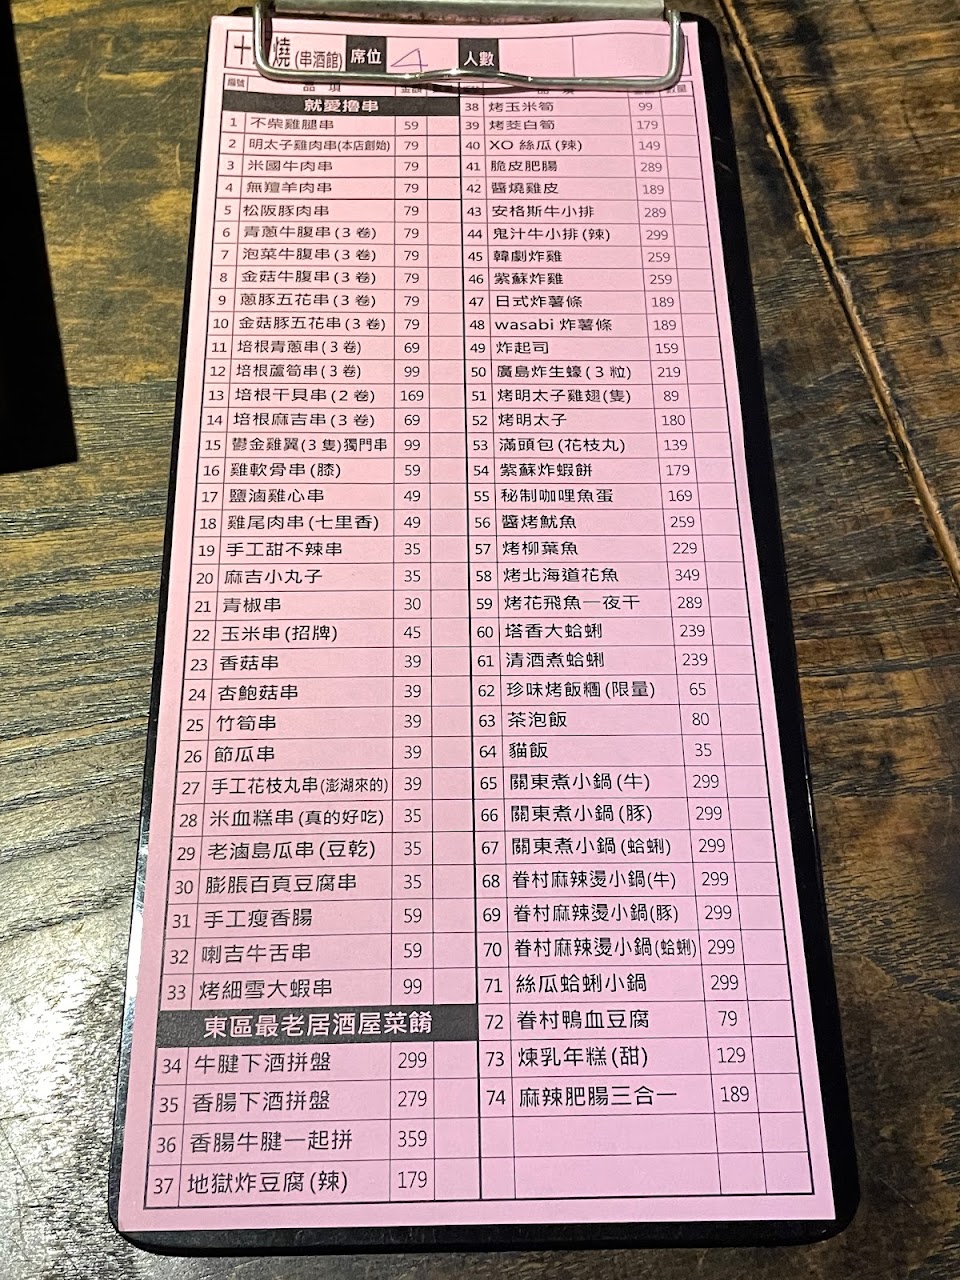 十 燒(串酒館) 席位 4 人數
編號 品項 金額
就愛擼串
1 不柴雞腿串 59
2 明太子雞肉串(本店創始) 79
3 米國牛肉串 79
4 無羶羊肉串 79
5 松阪豚肉串 79
6 青蔥牛腹串(3 卷) 79
7 泡菜牛腹串(3 卷) 79
8 金菇牛腹串(3 卷) 79
9 蔥豚五花串(3 卷) 79
10 金菇豚五花串(3 卷) 79
11 培根青蔥串(3 卷) 69
12 培根蘆筍串(3 卷) 99
13 培根干貝串(2 卷) 169
14 培根麻吉串(3 卷) 69
15 鬱金雞翼(3 隻)獨門串 99
16 雞軟骨串(膝) 59
17 鹽滷雞心串 49
18 雞尾肉串(七里香) 49
19 手工甜不辣串 35
20 麻吉小丸子 35
21 青椒串 30
22 玉米串(招牌) 45
23 香菇串 39
24 杏鮑菇串 39
25 竹筍串 39
26 節瓜串 39
27 手工花枝丸串(澎湖來的) 39
28 米血糕串(真的好吃) 35
29 老滷島瓜串(豆乾) 35
30 膨脹百頁豆腐串 35
31 手工瘦香腸 59
32 喇吉牛舌串 59
33 烤細雪大蝦串 99
東區最老居酒屋菜餚
34 牛腱下酒拼盤 299
35 香腸下酒拼盤 279
36 香腸牛腱一起拼 359
37 地獄炸豆腐(辣) 179
品項 數量
38 烤玉米筍 99
39 烤茭白筍 179
40 XO 絲瓜(辣) 149
41 脆皮肥腸 289
42 醬燒雞皮 189
43 安格斯牛小排 289
44 鬼汁牛小排(辣) 299
45 韓劇炸雞 259
46 紫蘇炸雞 259
47 日式炸薯條 189
48 wasabi 炸薯條 189
49 炸起司 159
50 廣島炸生蠔(3 粒) 219
51 烤明太子雞翅(隻) 89
52 烤明太子 180
53 滿頭包(花枝丸) 139
54 紫蘇炸蝦餅 179
55 秘制咖哩魚蛋 169
56 醬烤魷魚 259
57 烤柳葉魚 229
58 烤北海道花魚 349
59 烤花飛魚一夜干 289
60 塔香大蛤蜊 239
61 清酒煮蛤蜊 239
62 珍味烤飯糰(限量) 65
63 茶泡飯 80
64 貓飯 35
65 關東煮小鍋(牛) 299
66 關東煮小鍋(豚) 299
67 關東煮小鍋(蛤蜊) 299
68 眷村麻辣燙小鍋(牛) 299
69 眷村麻辣燙小鍋(豚) 299
70 眷村麻辣燙小鍋(蛤蜊) 299
71 絲瓜蛤蜊小鍋 299
72 眷村鴨血豆腐 79
73 煉乳年糕(甜) 129
74 麻辣肥腸三合一 189